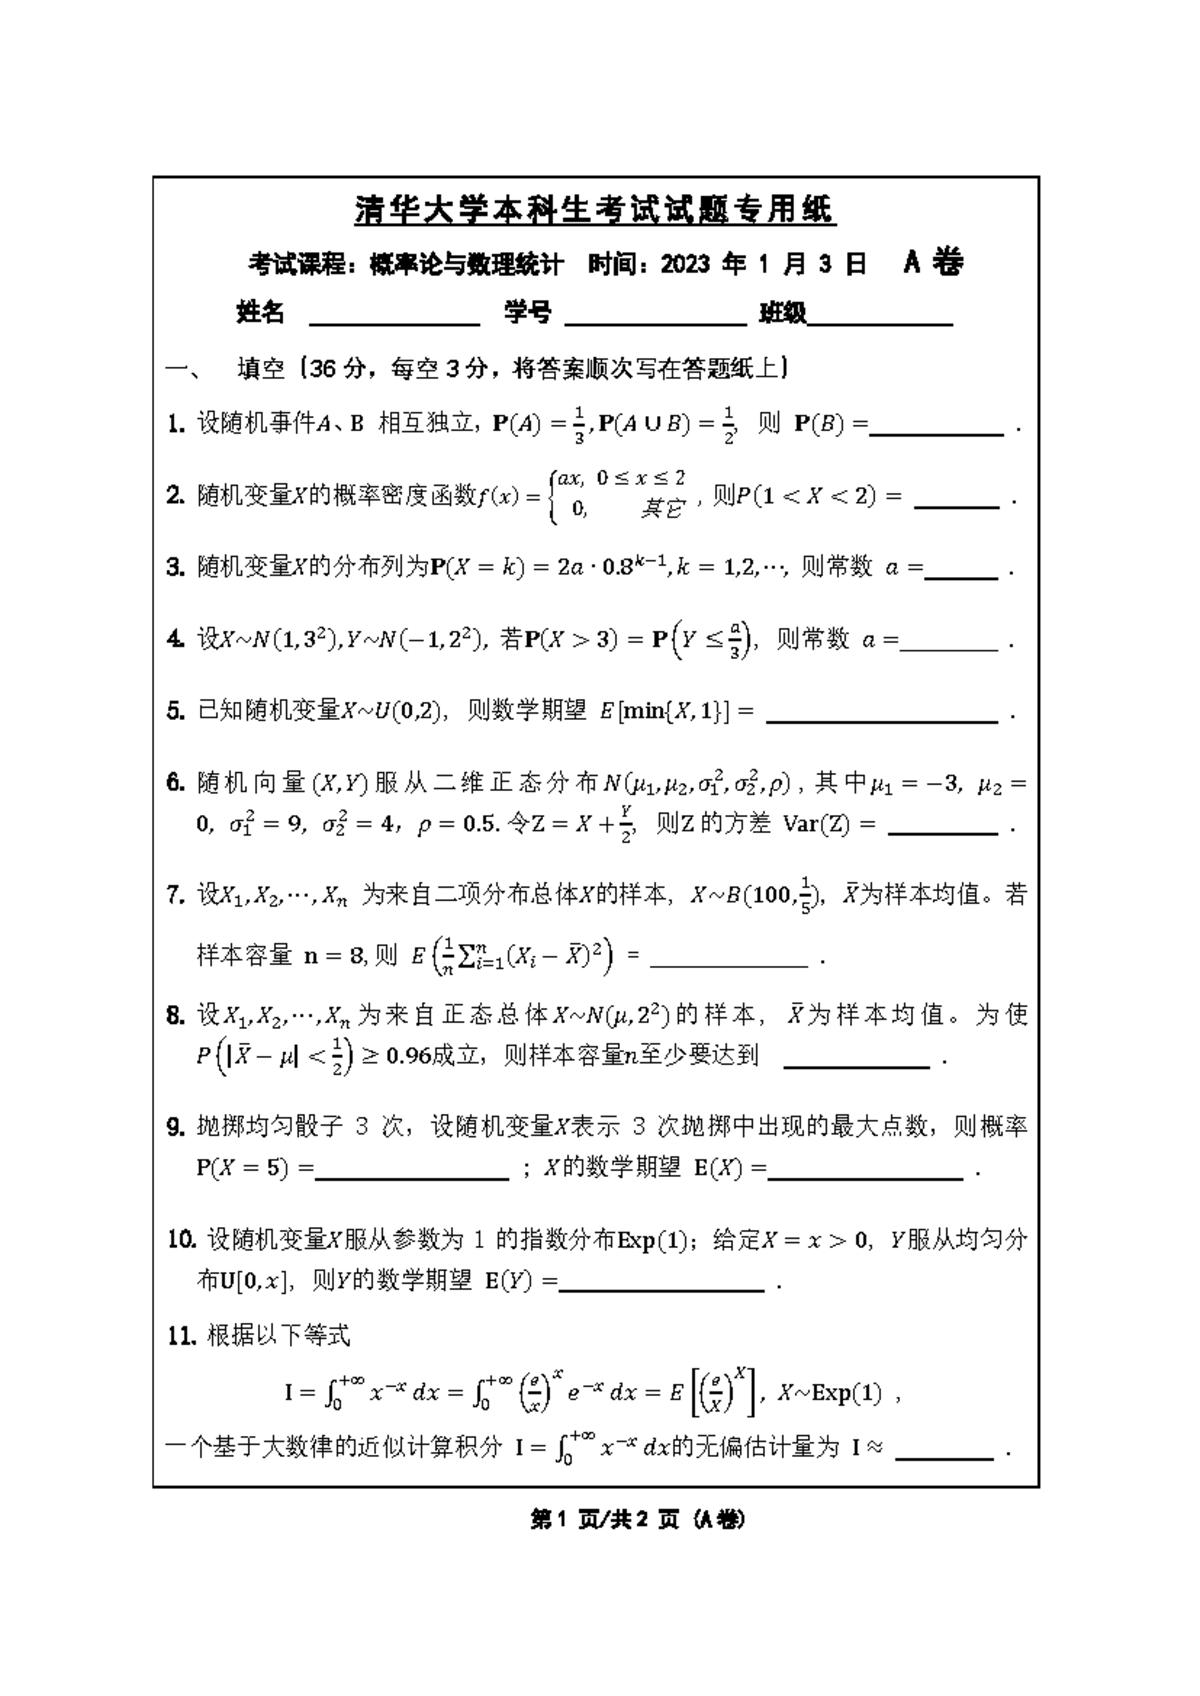 清华大学本科生考试试题专用纸
考试课程：概率论与数理统计 时间：2023 年 1 月 3 日 A 卷
姓名 ____________ 学号 ____________ 班级____________
一、 填空（36 分，每空 3 分，将答案顺次写在答题纸上）
1. 设随机事件A、B 相互独立，P(A) = 1/3, P(A ∪ B) = 1/2, 则 P(B) =__________ .
2. 随机变量X的概率密度函数f(x) = {ax, 0 ≤ x ≤ 2; 0, 其它 , 则P(1 < X < 2) = ______ .
3. 随机变量X的分布列为P(X = k) = 2a · 0.8^{k−1}, k = 1,2,⋯, 则常数 a =______ .
4. 设X~N(1,3²), Y~N(−1,2²), 若P(X > 3) = P(Y ≤ a/3), 则常数 a =________ .
5. 已知随机变量X~U(0,2), 则数学期望 E[min{X, 1}] = ______________ .
6. 随机向量(X,Y)服从二维正态分布N(μ₁,μ₂,σ₁²,σ₂²,ρ), 其中μ₁ = −3, μ₂ =
0, σ₁² = 9, σ₂² = 4, ρ = 0.5. 令Z = X + Y/2, 则Z 的方差 Var(Z) = ________ .
7. 设X₁,X₂,⋯,Xₙ 为来自二项分布总体X的样本, X~B(100,1/5), X̄为样本均值。若
样本容量 n = 8, 则 E(1/n ∑ᵢ₌₁ⁿ(Xᵢ − X̄)²) = ____________ .
8. 设X₁,X₂,⋯,Xₙ为来自正态总体X~N(μ,2²)的样本, X̄为样本均值。为使
P(|X̄ − μ| < 1/2) ≥ 0.96成立，则样本容量n至少要达到 __________ .
9. 抛掷均匀骰子 3 次，设随机变量X表示 3 次抛掷中出现的最大点数，则概率
P(X = 5) =______________ ；X的数学期望 E(X) =______________ .
10. 设随机变量X服从参数为 1 的指数分布Exp(1)；给定X = x > 0, Y服从均匀分
布U[0,x], 则Y的数学期望 E(Y) =______________ .
11. 根据以下等式
I = ∫₀^{+∞} x^{−x} dx = ∫₀^{+∞} (e/x)^x e^{−x} dx = E[(e/X)^X], X~Exp(1) ,
一个基于大数律的近似计算积分 I = ∫₀^{+∞} x^{−x} dx的无偏估计量为 I ≈ ________ .
第 1 页/共 2 页 (A 卷)